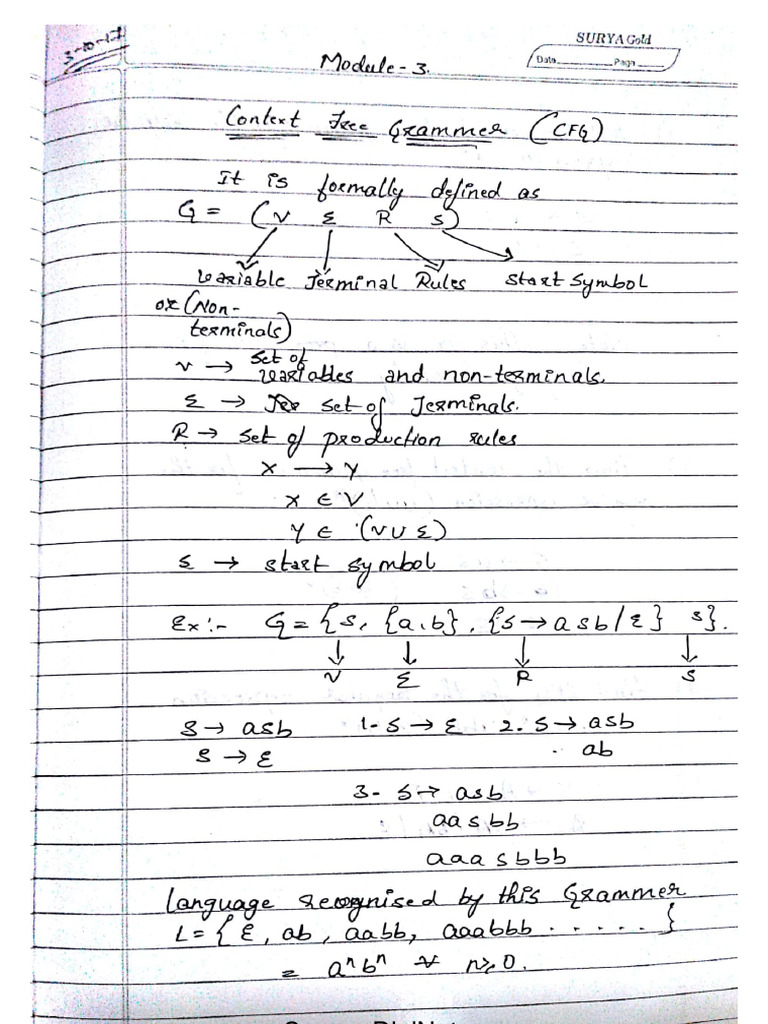 3-10-17
SURYA Gold
Date Page
Module-3.
Context Free Grammer (CFG)
It is formally defined as
G = (V Σ R S)
Variable Terminal Rules start symbol
or (Non-
terminals)
V → set of variables and non-terminals.
Σ → set of Terminals.
R → set of production rules
X → Y
X ∈ V
Y ∈ (V ∪ Σ)
Σ → start symbol
Ex:- G = {S, {a,b}, {S → aSb/ε} S}.
V Σ R S
S → aSb 1- S → ε . 2- S → aSb
S → ε ab
3- S → aSb
aaSbb
aaaSbbb
Language recognised by this Grammer
L = {ε, ab, aabb, aaabbb ......}
= aⁿbⁿ ∀ n≥0.